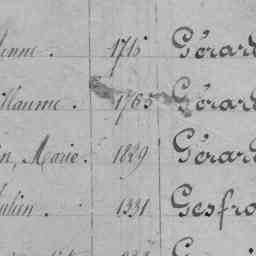 ienne. 1715 Gérard
illaume. 1765 Gérard
in, Marie. 1829 Gérard
Julien. 1331 Gesfro